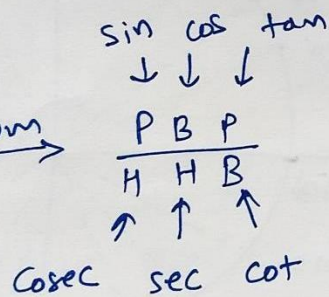 sin cos tan
P B P
H H B
Cosec sec cot